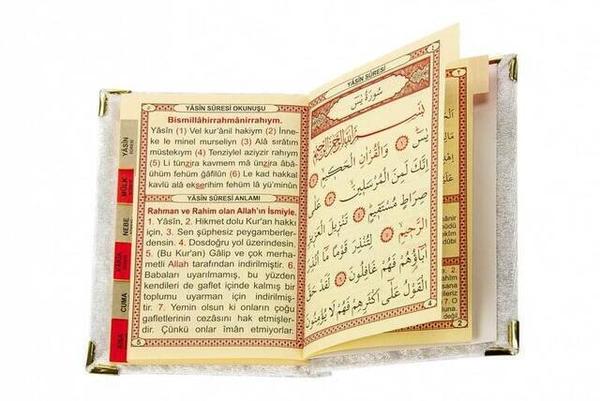 YÂSİN SÛRESİ OKUNUŞU
Bismillâhirrahmânirrahıym.
Yâsîn (1) Vel kur'ânil hakiym (2) İnne-
ke le minel murseliyn (3) Alâ sırâtım
müstekıym (4) Tenziylel aziyzir rahıym
(5) Li tünzira kavmem mâ ünzira âbâ-
ühüm fehüm ğâfilûn (6) Le kad hakkal
kavlü alâ ekserihim fehüm lâ yü'minûn
YÂSİN SÛRESİ ANLAMI
Rahman ve Rahim olan Allah'ın İsmiyle.
1. Yâsîn, 2. Hikmet dolu Kur'an hakkı
için, 3. Sen şüphesiz peygamberler-
densin. 4. Dosdoğru yol üzerindesin.
5. (Bu Kur'an) Gâlip ve çok merha-
metli Allah tarafından indirilmiştir. 6.
Babaları uyarılmamış, bu yüzden
kendileri de gaflet içinde kalmış bir
toplumu uyarman için indirilmiş-
tir. 7. Yemin olsun ki onların çoğu
gafletlerinin cezasını hak etmişler-
dir. Çünkü onlar îmân etmiyorlar.
5
YÂSİN
MÜLK
NEBE
CUMA
YÂSİN SÛRESİ
سُورَةُ يٰسٓ
بِسْمِ اللهِ الرَّحْمٰنِ الرَّحِيمِ
يٰسٓ ﴿١﴾ وَالْقُرْاٰنِ الْحَكِيمِ ﴿٢﴾
اِنَّكَ لَمِنَ الْمُرْسَلِينَ ﴿٣﴾ عَلٰى
صِرَاطٍ مُسْتَقِيمٍ ﴿٤﴾ تَنْزِيلَ الْعَزِيزِ
الرَّحِيمِ ﴿٥﴾ لِتُنْذِرَ قَوْمًا مَٓا اُنْذِرَ
اٰبَٓاؤُ۬هُمْ فَهُمْ غَافِلُونَ ﴿٦﴾ لَقَدْ حَقَّ
الْقَوْلُ عَلٰٓى اَكْثَرِهِمْ فَهُمْ لَا يُؤْمِنُونَ
4
2